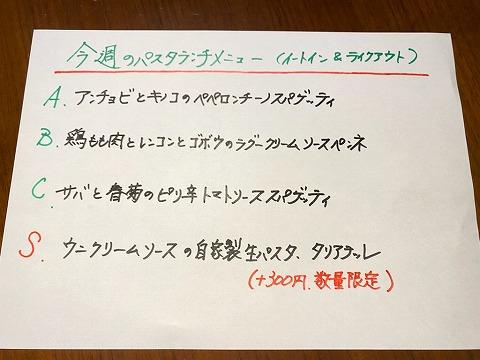 今週のパスタランチメニュー (イートイン & テイクアウト)
A. アンチョビとキノコのペペロンチーノスパゲッティ
B. 鶏もも肉とレンコンとゴボウのラグークリームソースペンネ
C. サバと春菊のピリ辛トマトソーススパゲッティ
S. ウニクリームソースの自家製生パスタ、タリアテッレ
(+300円、数量限定)